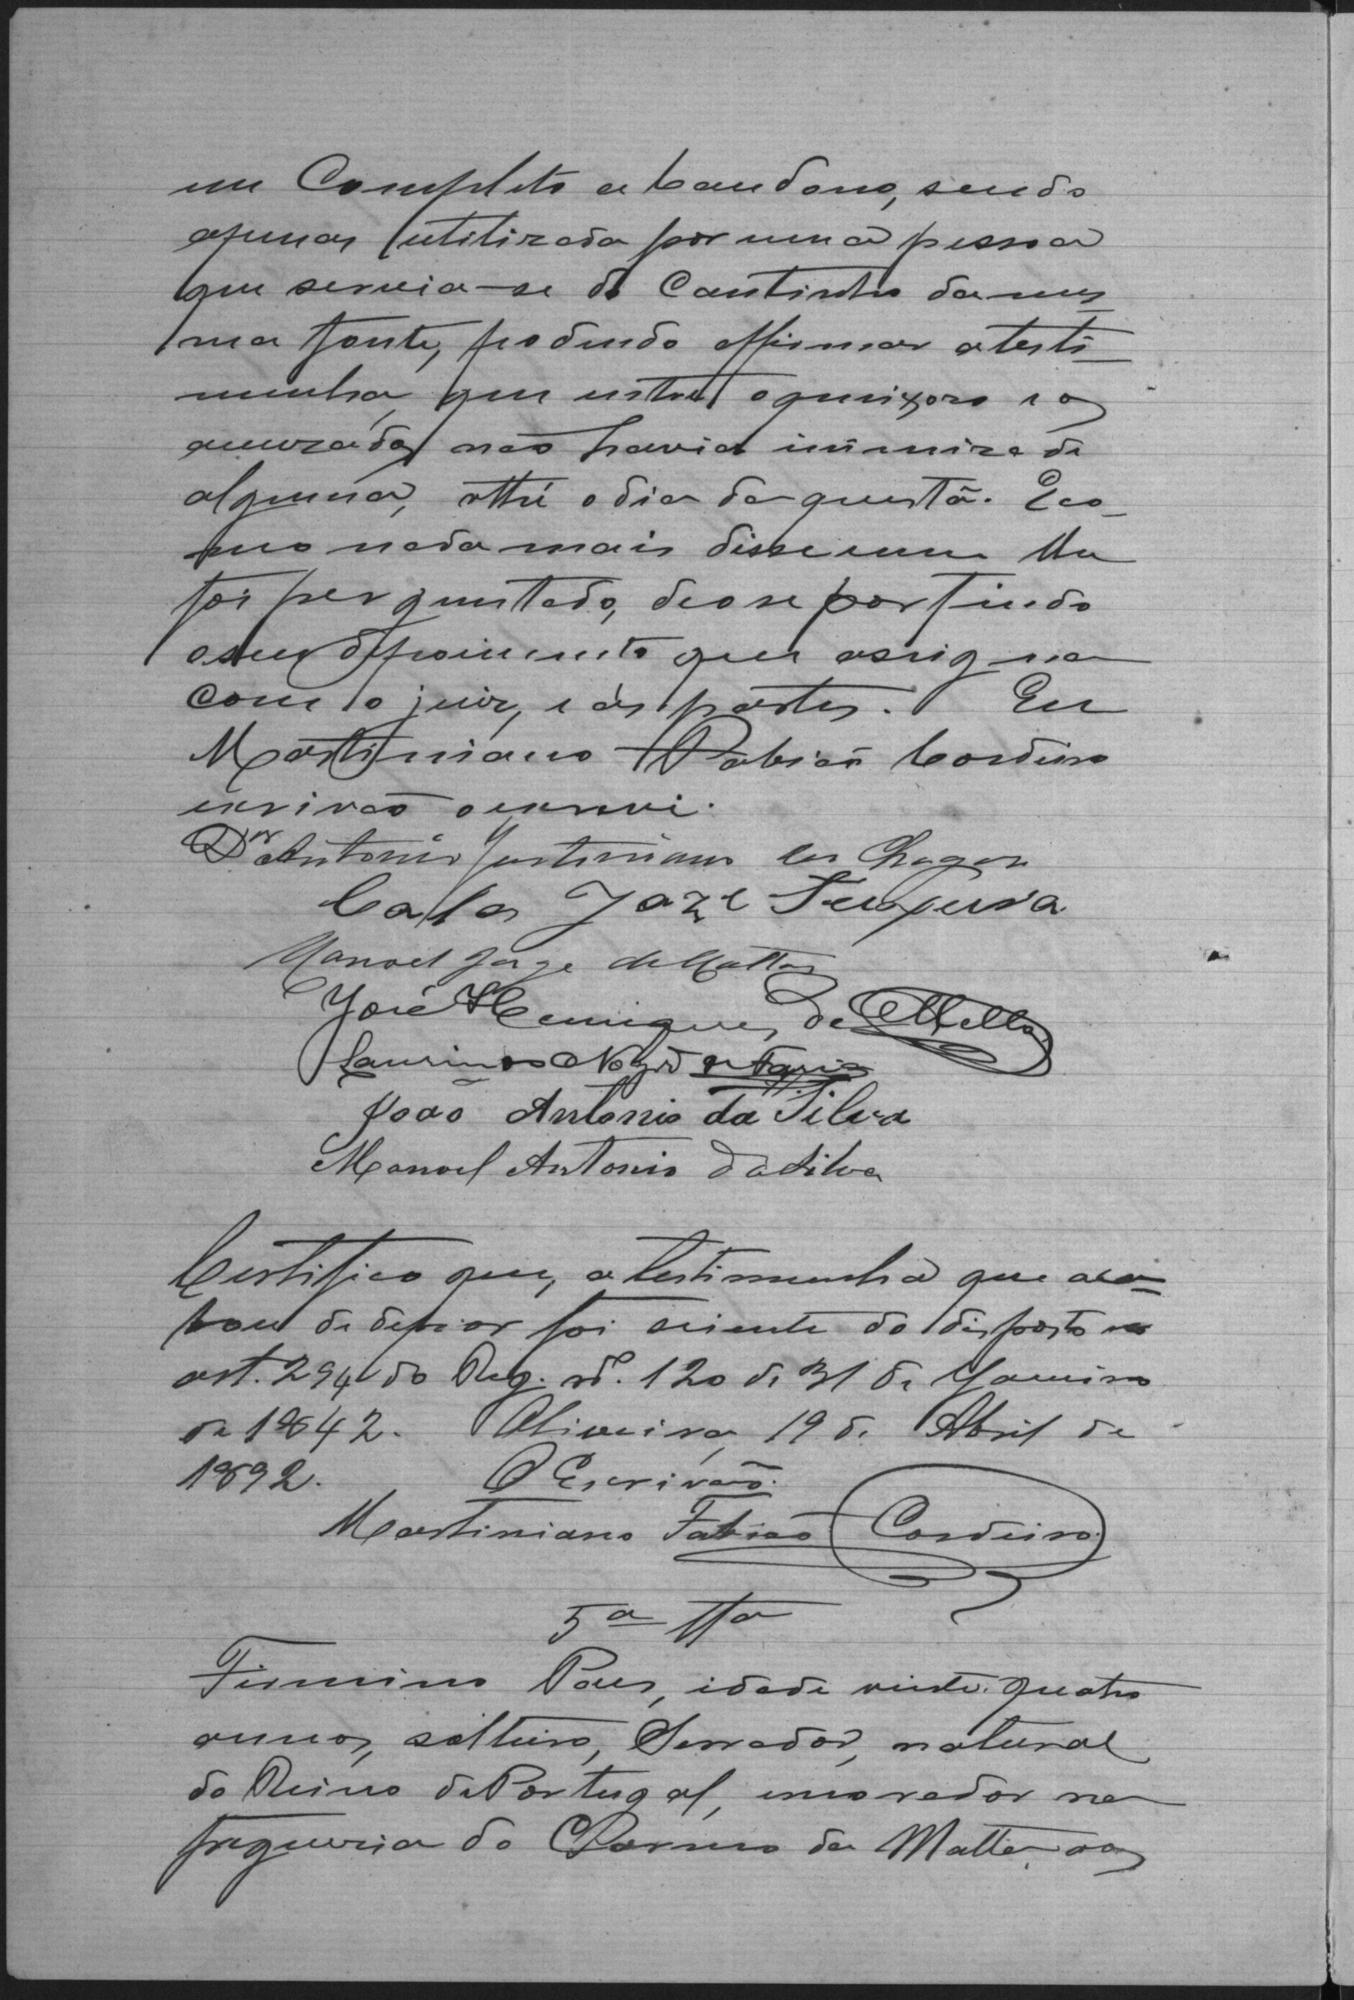 em Completo abandono, sendo
apenas utilizada por uma pessoa
que servia-se do Cantinho da mes
ma fonte, podendo affirmar a teste
munha, que entre o queixoso e os
accuzados não havia inimizade
alguma, atthé o dia da questã. E co
mo nada mais disse nem lhe
foi perguntado, deo se por findo
o seu depoimento que assigna
com o juiz, e as partes. Eu
Martiniano Fabião Cordeiro
escrivão o escrevi.
Dr Antonio Justiniano das Chagas
Carlos Jozé Siqueira
Manoel Jorge de Mattos
José Henriques de Mello
Laurindo de Faria
João Antonio da Silva
Manoel Antonio da Silva
Certifico que, a testimunha que aca
bou de depor foi sciente do disposto no
art. 294 do Reg. nº. 120 de 31 de Janeiro
de 1842. Oliveira, 19 de Abril de
1892. O Escrivão.
Martiniano Fabião Cordeiro
5ª Tta
Firmino Paes, idade vinte quatro
annos, solteiro, Serrador, natural
do Reino de Portugal, morador na
freguezia do Carmo da Matta, aos